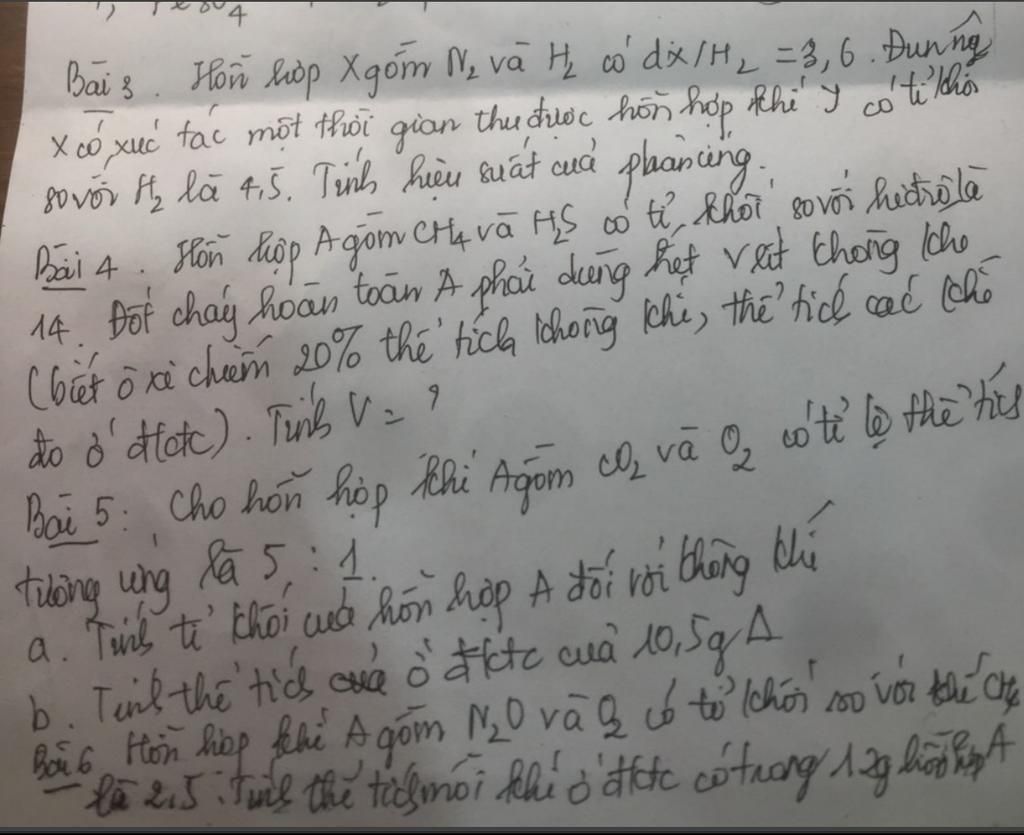 Bài 3. Hỗn hợp X gồm N2 và H2 có dx/H2 = 3,6. Đun nóng
X có xúc tác một thời gian thu được hỗn hợp khí Y có tỉ khối
so với H2 là 4,5. Tính hiệu suất của phản ứng.
Bài 4. Hỗn hợp A gồm CH4 và H2S có tỉ khối so với hiđrô là
14. Đốt cháy hoàn toàn A phải dùng hết V lít không khí
(biết ôxi chiếm 20% thể tích không khí, thể tích các khí
đo ở đktc). Tính V = ?
Bài 5: Cho hỗn hợp khí A gồm CO2 và O2 có tỉ lệ thể tích
tương ứng là 5 : 1.
a. Tính tỉ khối của hỗn hợp A đối với không khí
b. Tính thể tích ở đktc của 10,5g A
Bài 6 Hỗn hợp khí A gồm N2O và O2 có tỉ khối so với khí CH4
là 2,5. Tính thể tích mỗi khí ở đktc có trong 12g hỗn hợp A